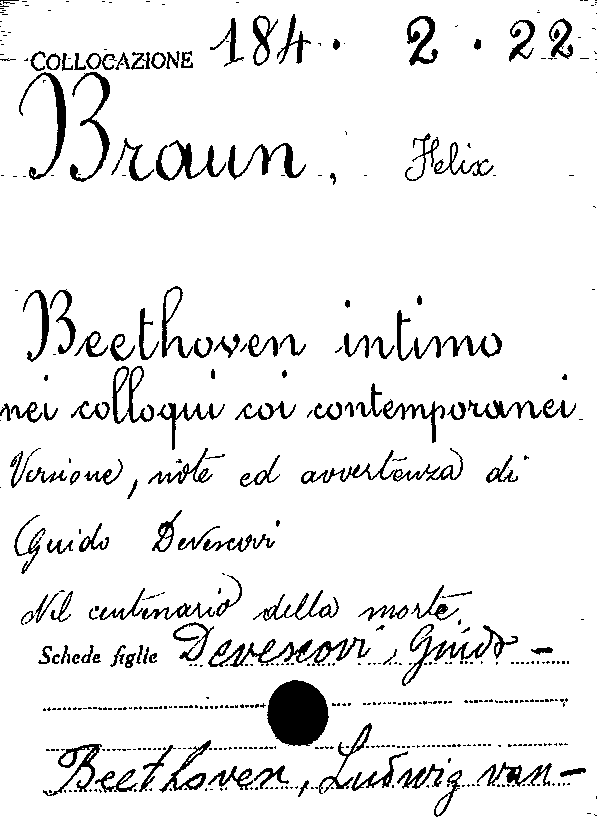 COLLOCAZIONE 184. 2. 22
Braun, Felix
Beethoven intimo
nei colloqui coi contemporanei
Versione, note ed avvertenza di
Guido Devescovi
Nel centenario della morte.
Schede figlie Devescovi, Guido -
Beethoven, Ludwig van -